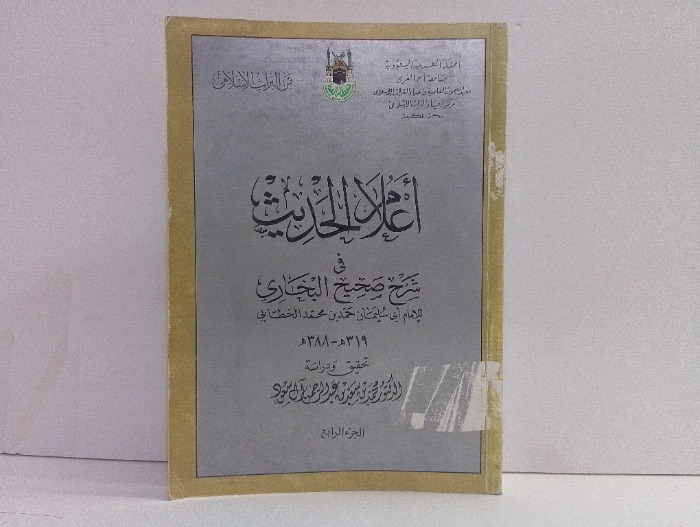 المملكة العربية السعودية
جامعة أم القرى
معهد البحوث العلمية وإحياء التراث الإسلامي
مركز إحياء التراث الإسلامي
مكة المكرمة
من التراث الإسلامي
أعلام الحديث
في
شرح صحيح البخاري
للإمام أبي سليمان حمد بن محمد الخطابي
٣١٩هـ - ٣٨٨هـ
تحقيق ودراسة
الدكتور محمد بن سعد بن عبد الرحمن آل سعود
الجزء الرابع